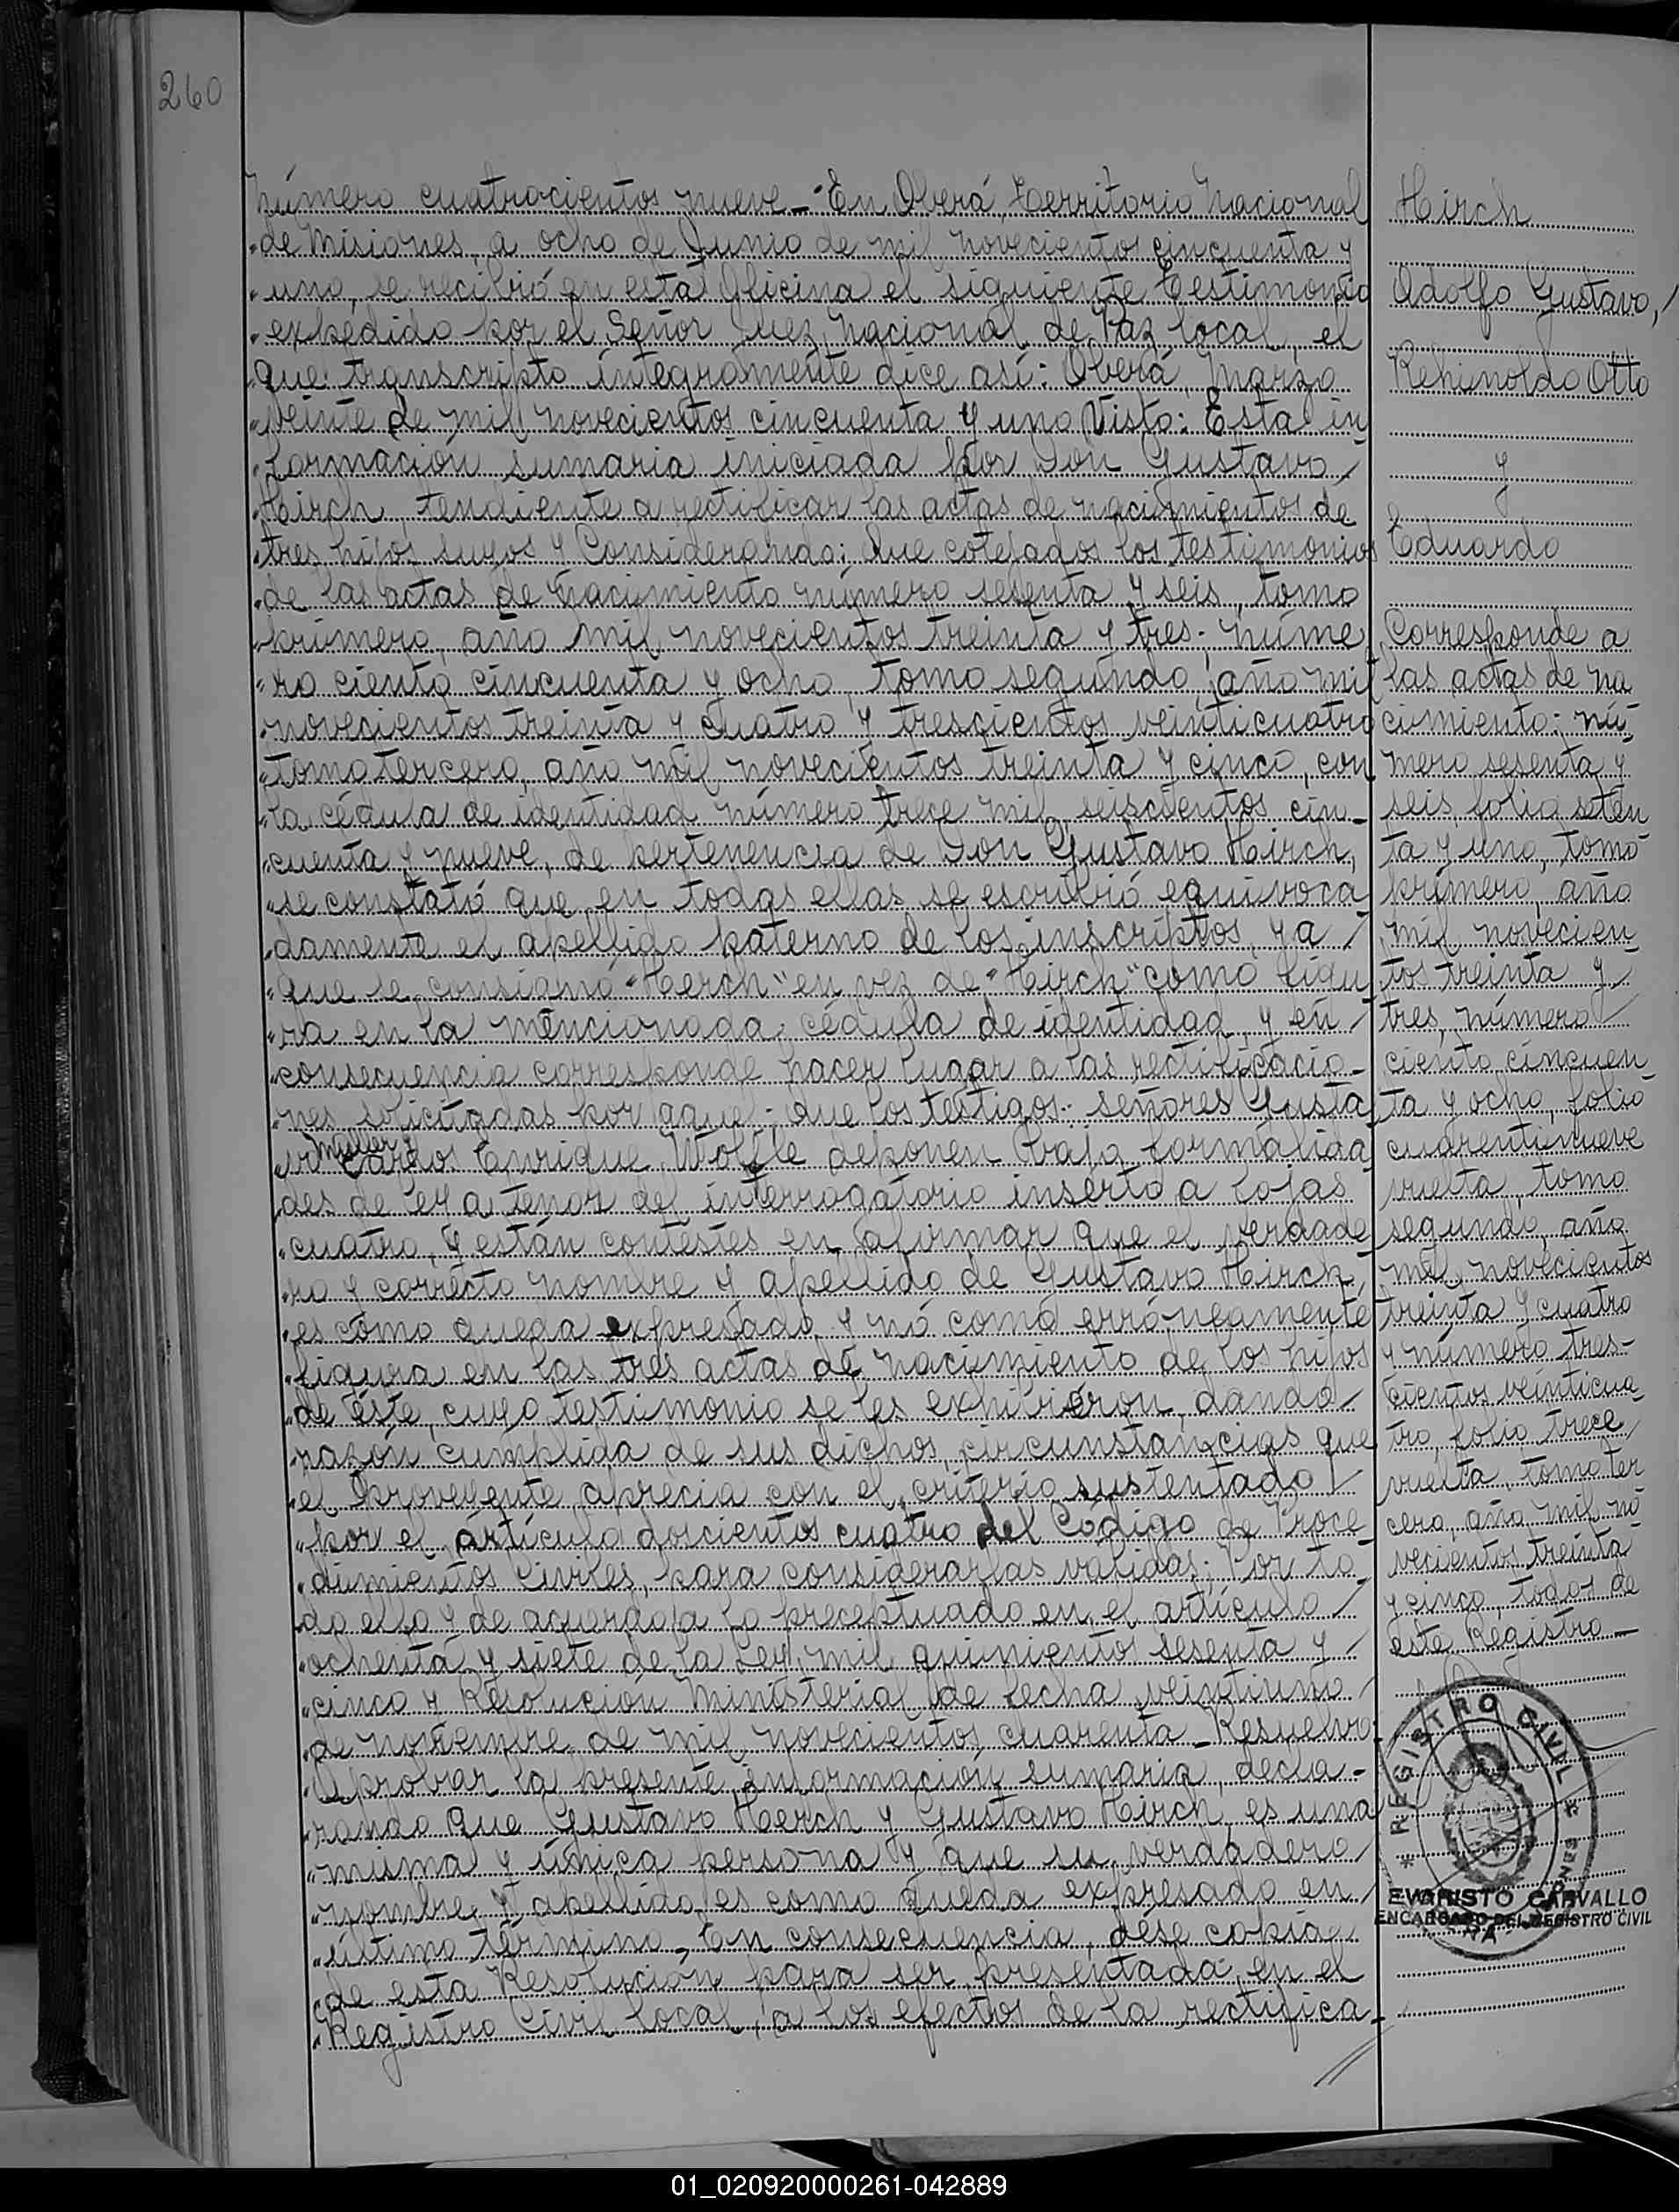 260
Número cuatrocientos nueve - "En Oberá, Territorio Nacional
"de Misiones, a ocho de Junio de mil novecientos cincuenta y
"uno, se recibió en esta Oficina el siguiente Testimonio
"expedido por el Señor Juez Nacional de Paz local, el
que transcripto íntegramente dice así: Oberá, Marzo
"veinte de mil novecientos cincuenta y uno Visto: Esta in
"formación sumaria iniciada por Don Gustavo /
"Hirch, tendiente a rectificar las actas de nacimientos de
"tres hijos suyos y Considerando: Que cotejados los testimonios
"de las actas de nacimiento número sesenta y seis, tomo
"primero, año mil novecientos treinta y tres; núme
"ro ciento cincuenta y ocho, tomo segundo, año mil
"novecientos treinta y cuatro y trescientos veinticuatro
"tomo tercero, año mil novecientos treinta y cinco, con
"la cédula de identidad número trece mil seiscientos cin-
"cuenta y nueve, de pertenencia de Don Gustavo Hirch,
"se constató que en todas ellas se escribió equivoca
"damente el apellido paterno de los inscriptos, ya /
"que se consignó "Herch" en vez de "Hirch" como figu
"ra en la mencionada cédula de identidad, y en /
"consecuencia corresponde hacer lugar a las rectificacio-
"nes solicitadas por aquel; Que los testigos: señores Gusta
Müller y
"vo Carlos Enrique Wölfle deponen bajo formalida
des de ley a tenor del interrogatorio inserto a fojas
"cuatro, y están contestes en afirmar que el verdade
"ro y correcto nombre y apellido de Gustavo Hirch,
"es como queda expresado y nó como erróneamente
"figura en las tres actas de nacimiento de los hijos
"de éste, cuyo testimonio se les exhibieron, dando /
"razón cumplida de sus dichos, circunstancias que
"el proveyente aprecia con el criterio sustentado /
"por el artículo doscientos cuatro del Código de Proce
"dimientos Civiles, para considerarlas validas; Por to
do ello y de acuerdo a lo preceptuado en el artículo /
"ochenta y siete de la Ley mil quinientos sesenta y /
"cinco y Resolución Ministerial de fecha veintiuno /
"de noviembre de mil novecientos cuarenta - Resuelvo:
"Aprobar la presente información sumaria, decla-
"rando que Gustavo Herch y Gustavo Hirch, es una
"misma y única persona y que su verdadero /
"nombre y apellido es como queda expresado en /
"último término - En consecuencia, dése copia
"de esta Resolución para ser presentada en el
"Registro Civil local, a los efectos de la rectifica-
Hirch
Adolfo Gustavo, /
Rehinoldo Otto
y
Eduardo
Corresponde a
las actas de na
cimiento: nú
mero sesenta y
seis, folio seten
ta y uno, tomo
primero, año
mil novecien
tos treinta y /
tres, número /
ciento cincuen
ta y ocho, folio
cuarentinueve
vuelta, tomo
segundo, año
mil novecientos
treinta y cuatro
y número tres-
cientos veinticua
tro, folio trece /
vuelta, tomo ter
cero, año mil no
vecientos treinta
y cinco, todos de
este Registro -
* REGISTRO CIVIL *
EVARISTO CARVALLO
ENCARGADO DEL REGISTRO CIVIL
01_020920000261-042889